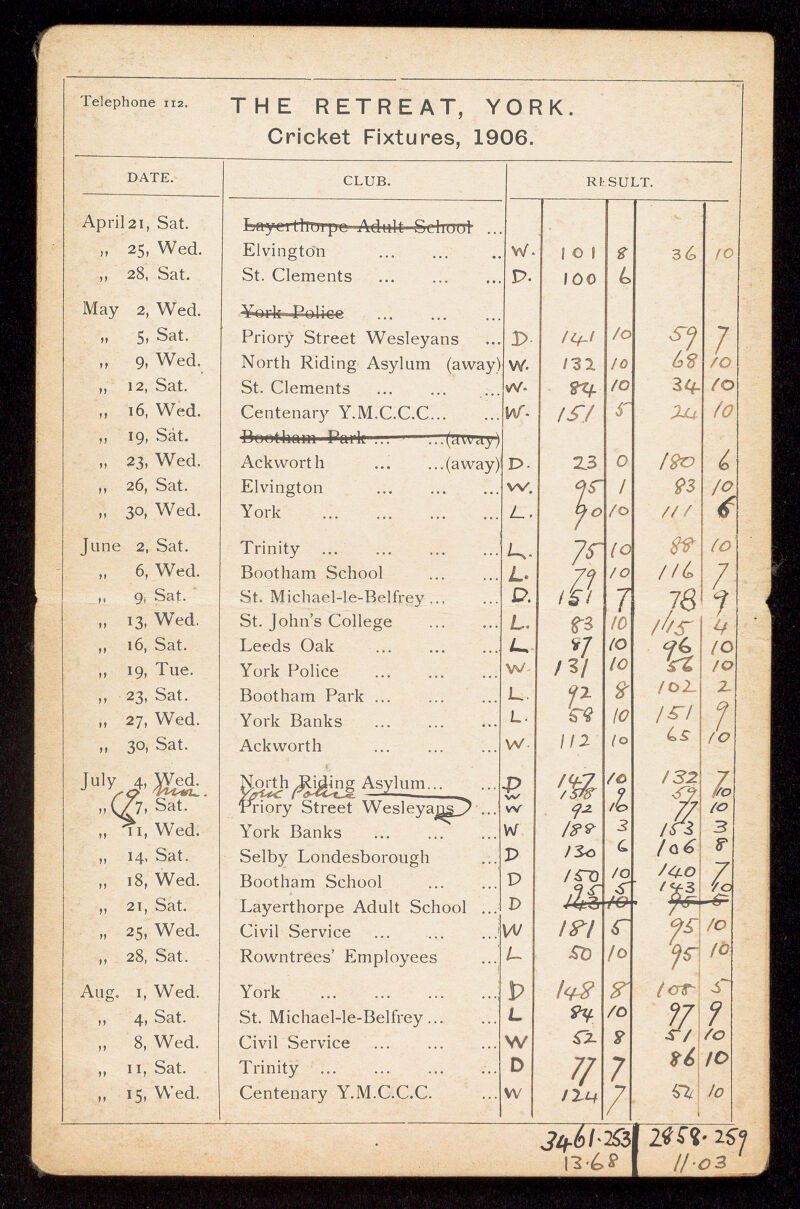 Telephone 112.
THE RETREAT, YORK.
Cricket Fixtures, 1906.
DATE. CLUB. RESULT.
April 21, Sat. Layerthorpe Adult School ...
„ 25, Wed. Elvington ... ... .. W. 101 8 36 10
„ 28, Sat. St. Clements ... ... ... D. 100 6
May 2, Wed. York Police ... ... ...
„ 5, Sat. Priory Street Wesleyans ... D. 141 10 59 7
„ 9, Wed. North Riding Asylum (away) W. 132 10 68 10
„ 12, Sat. St. Clements ... ... ... W. 84 10 34 10
„ 16, Wed. Centenary Y.M.C.C.C... ... W. 151 5 24 10
„ 19, Sat. Bootham Park ... ...(away)
„ 23, Wed. Ackworth ... ...(away) D. 23 0 180 6
„ 26, Sat. Elvington ... ... ... W. 95 1 83 10
„ 30, Wed. York ... ... ... ... L. 90 10 111 6
June 2, Sat. Trinity ... ... ... ... L. 75 10 88 10
„ 6, Wed. Bootham School ... ... L. 79 10 116 7
„ 9, Sat. St. Michael-le-Belfrey ... ... D. 151 7 78 9
„ 13, Wed. St. John's College ... ... L. 83 10 115 4
„ 16, Sat. Leeds Oak ... ... ... L. 87 10 96 10
„ 19, Tue. York Police ... ... ... W. 131 10 56 10
„ 23, Sat. Bootham Park ... ... ... L. 92 8 102 2
„ 27, Wed. York Banks ... ... ... L. 58 10 151 9
„ 30, Sat. Ackworth ... ... ... W. 112 10 65 10
July 4, Wed. North Riding Asylum... ... D 147 10 132 7
York Police W 158 9 59 10
„ 7, Sat. Priory Street Wesleyans ... W 92 10 77 10
„ 11, Wed. York Banks ... ... ... W 188 3 153 3
„ 14, Sat. Selby Londesborough ... D 130 6 106 8
„ 18, Wed. Bootham School ... ... D 150 10 140 7
95 5 143 10
„ 21, Sat. Layerthorpe Adult School ... D 143 10 95 5
„ 25, Wed. Civil Service ... ... ... W 181 5 95 10
„ 28, Sat. Rowntrees' Employees ... L 50 10 95 10
Aug. 1, Wed. York ... ... ... ... D 148 8 108 5
„ 4, Sat. St. Michael-le-Belfrey ... ... L 84 10 97 9
„ 8, Wed. Civil Service ... ... ... W 52 8 51 10
„ 11, Sat. Trinity ... ... ... ... D 77 7 86 10
„ 15, Wed. Centenary Y.M.C.C.C. ... W 124 7 52 10
3461·253 2858·259
13·68 11·03